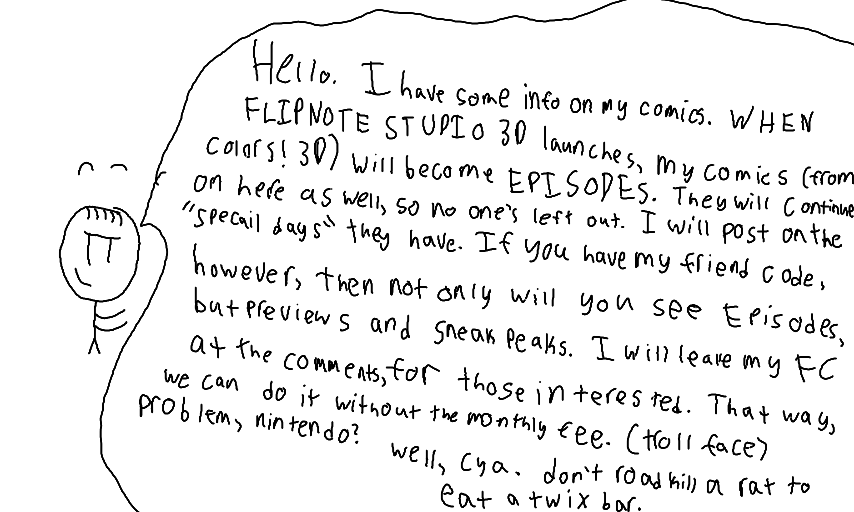 Hello. I have some info on my comics. WHEN
FLIPNOTE STUDIO 3D launches, my comics (from
colors! 3D) will become EPISODES. They will continue
on here as well, so no one's left out. I will post on the
"specail days" they have. If you have my friend code,
however, then not only will you see Episodes,
but previews and sneak peaks. I will leave my FC
at the comments, for those interested. That way,
we can do it without the monthly fee. (troll face)
problem, nintendo?
well, cya. don't roadkill a rat to
eat a twix bar.